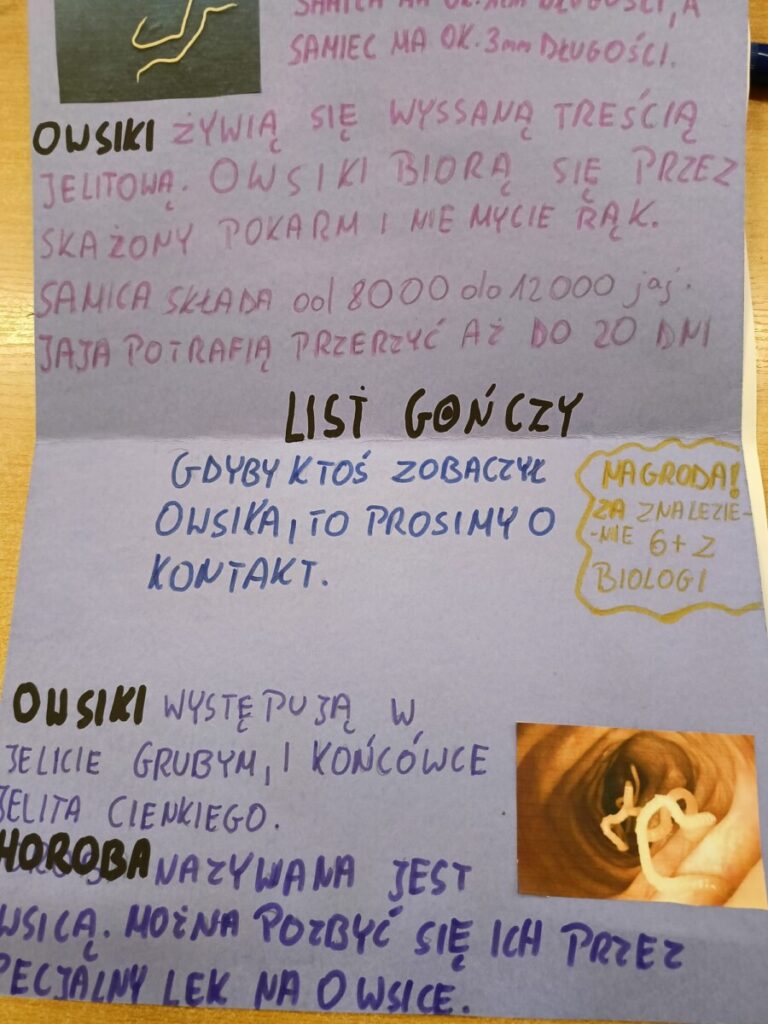 SAMICA MA OK. DŁUGOŚCI, A
SAMIEC MA OK. 3mm DŁUGOŚCI.
OWSIKI ŻYWIĄ SIĘ WYSSANĄ TREŚCIĄ
JELITOWĄ. OWSIKI BIORĄ SIĘ PRZEZ
SKAŻONY POKARM I NIE MYCIE RĄK.
SAMICA SKŁADA od 8000 do 12000 jaj.
JAJA POTRAFIĄ PRZERZYĆ AŻ DO 20 DNI
LIST GOŃCZY
GDYBY KTOŚ ZOBACZYŁ
OWSIKA, TO PROSIMY O
KONTAKT.
NAGRODA!
ZA ZNALEZIE-
-NIE 6+ Z
BIOLOGI
OWSIKI WYSTĘPUJĄ W
JELICIE GRUBYM, I KOŃCÓWCE
JELITA CIENKIEGO.
HOROBA NAZYWANA JEST
WSICĄ. MOŻNA POZBYĆ SIĘ ICH PRZEZ
PECJALNY LEK NA OWSICE.